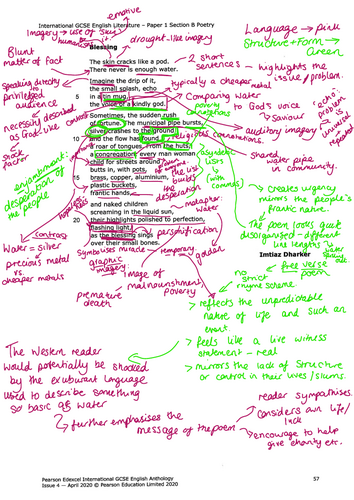 International GCSE English Literature – Paper 1 Section B Poetry
emotive
Imagery → use of sky
humanising it
drought-like imagery
Language → pink
Structure + Form → Green
Blessing
Blunt
matter of fact
The skin cracks like a pod.
There never is enough water.
2 short
sentences - highlights the
issue / problem.
Speaking directly to
privileged
audience
Imagine the drip of it,
the small splash, echo
5 in a tin mug,
the voice of a kindly god.
typically a cheaper
metal
Comparing water
to God's voice.
Saviour
'echo'
problem
is
universal
repeated
necessity described
as God like
control
Sometimes, the sudden rush
of fortune. The municipal pipe bursts,
silver crashes to the ground
10 and the flow has found
a roar of tongues. From the huts,
a congregation: every man woman
child for streets around
butts in, with pots,
15 brass, copper, aluminium,
plastic buckets,
frantic hands,
poverty
connotations
auditory imagery
religious connotations.
shared
water pipe
in community.
asyndetic
lists
(with
commas)
shock
factor
enjambment:
desperation of
the people
the list
builds
the
desperation
creates urgency
mirrors the people's
frantic nature.
metaphor:
water
and naked children
screaming in the liquid sun,
20 their highlights polished to perfection,
flashing light,
as the blessing sings
over their small bones.
The poem looks quite
disorganised - different
line lengths
personification
golden
temporary
contrast
Water = Silver
precious metal
vs.
cheaper metals
Symbolises miracle
graphic
imagery
Image of
malnourishment,
poverty
premature
death
Imtiaz Dharker
free verse
poem
no
strict
rhyme scheme
> reflects the unpredictable
nature of life and such an
event.
> feels like a live witness
statement - real
> mirrors the lack of structure
or control in their lives / slums.
The Western reader
would potentially be shocked
by the exuberant language
used to describe something
so basic as water
further emphasises the
message of the poem
reader sympathises.
considers own life /
luck
encourage to help
give charity etc.
Pearson Edexcel International GCSE English Anthology
Issue 4 — April 2020 © Pearson Education Limited 2020
57